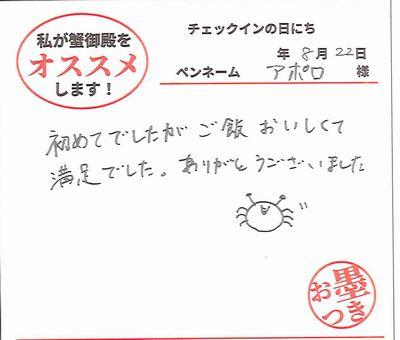 私が蟹御殿を
オススメ
します！
チェックインの日にち
年 8月 22日
ペンネーム アポロ 様
初めてでしたが ご飯 おいしくて
満足でした。ありがとうございました
お墨
つき